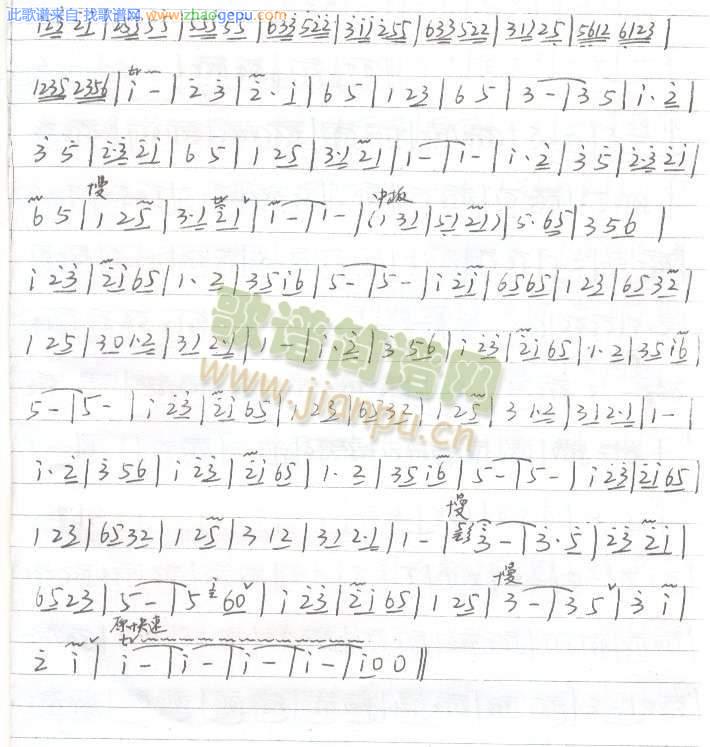 此歌谱来自 找歌谱网 www.zhaogepu.com
i̇ 2̇3̇ 2̇i̇ | 2̇5̇5̇ 5̇5̇ | 5̇5̇5̇ 5̇5̇ | 6 3̇3̇ 5̇2̇2̇ | 3̇i̇i̇ 2̇55 | 633 522 | 311 25 | 5612 6123 |
1235 2356 | tr i̇ − | 2̇ 3̇ | 2̇· i̇ | 6 5 | 1 23 | 6 5 | 3 − | 3 5 | i̇· 2̇ |
3̇ 5̇ | 2̇·3̇ 2̇i̇ | 6 5 | 1 25 | 3·1 21 | 1 − | 1 − | i̇· 2̇ | 3̇ 5̇ | 2̇·3̇ 2̇i̇ |
慢 中板
6 5 | 1 25 | 3·1 21 | 1 − | 1 − | (1 31 | 51 21) | 5· 65 | 3 56 |
i̇ 2̇3̇ | 2̇i̇ 65 | 1· 2 | 35 i̇6 | 5 − | 5 − | i̇ 2̇i̇ | 65 65 | 1 23 | 65 32 |
歌谱简谱网
1 25 | 30 1·2 | 31 2·1 | 1 − | i̇· 2̇ | 3̇ 56 | i̇ 2̇3̇ | 2̇i̇ 65 | 1· 2 | 35 i̇6 |
www.jianpu.cn
5 − | 5 − | i̇ 2̇3̇ | 2̇i̇ 65 | 1 23 | 65 32 | 1 25 | 3 1·2 | 31 2·1 | 1 − |
i̇· 2̇ | 3̇ 56 | i̇ 2̇3̇ | 2̇i̇ 65 | 1· 2 | 35 i̇6 | 5 − | 5 − | i̇ 2̇3̇ | 2̇i̇ 65 |
慢
1 23 | 65 32 | 1 25 | 3 12 | 31 2·1 | 1 − | 3̇ − | 3̇· 5̇ | 2̇3̇ 2̇i̇ |
慢
65 23 | 5 − | 5 60 | i̇ 2̇3̇ | 2̇i̇ 65 | 1 25 | 3 − | 3 5 | 3̇ i̇ |
原快速
2̇ i̇ | tr i̇ − | i̇ − | i̇ − | i̇ − | i̇0 0 ‖